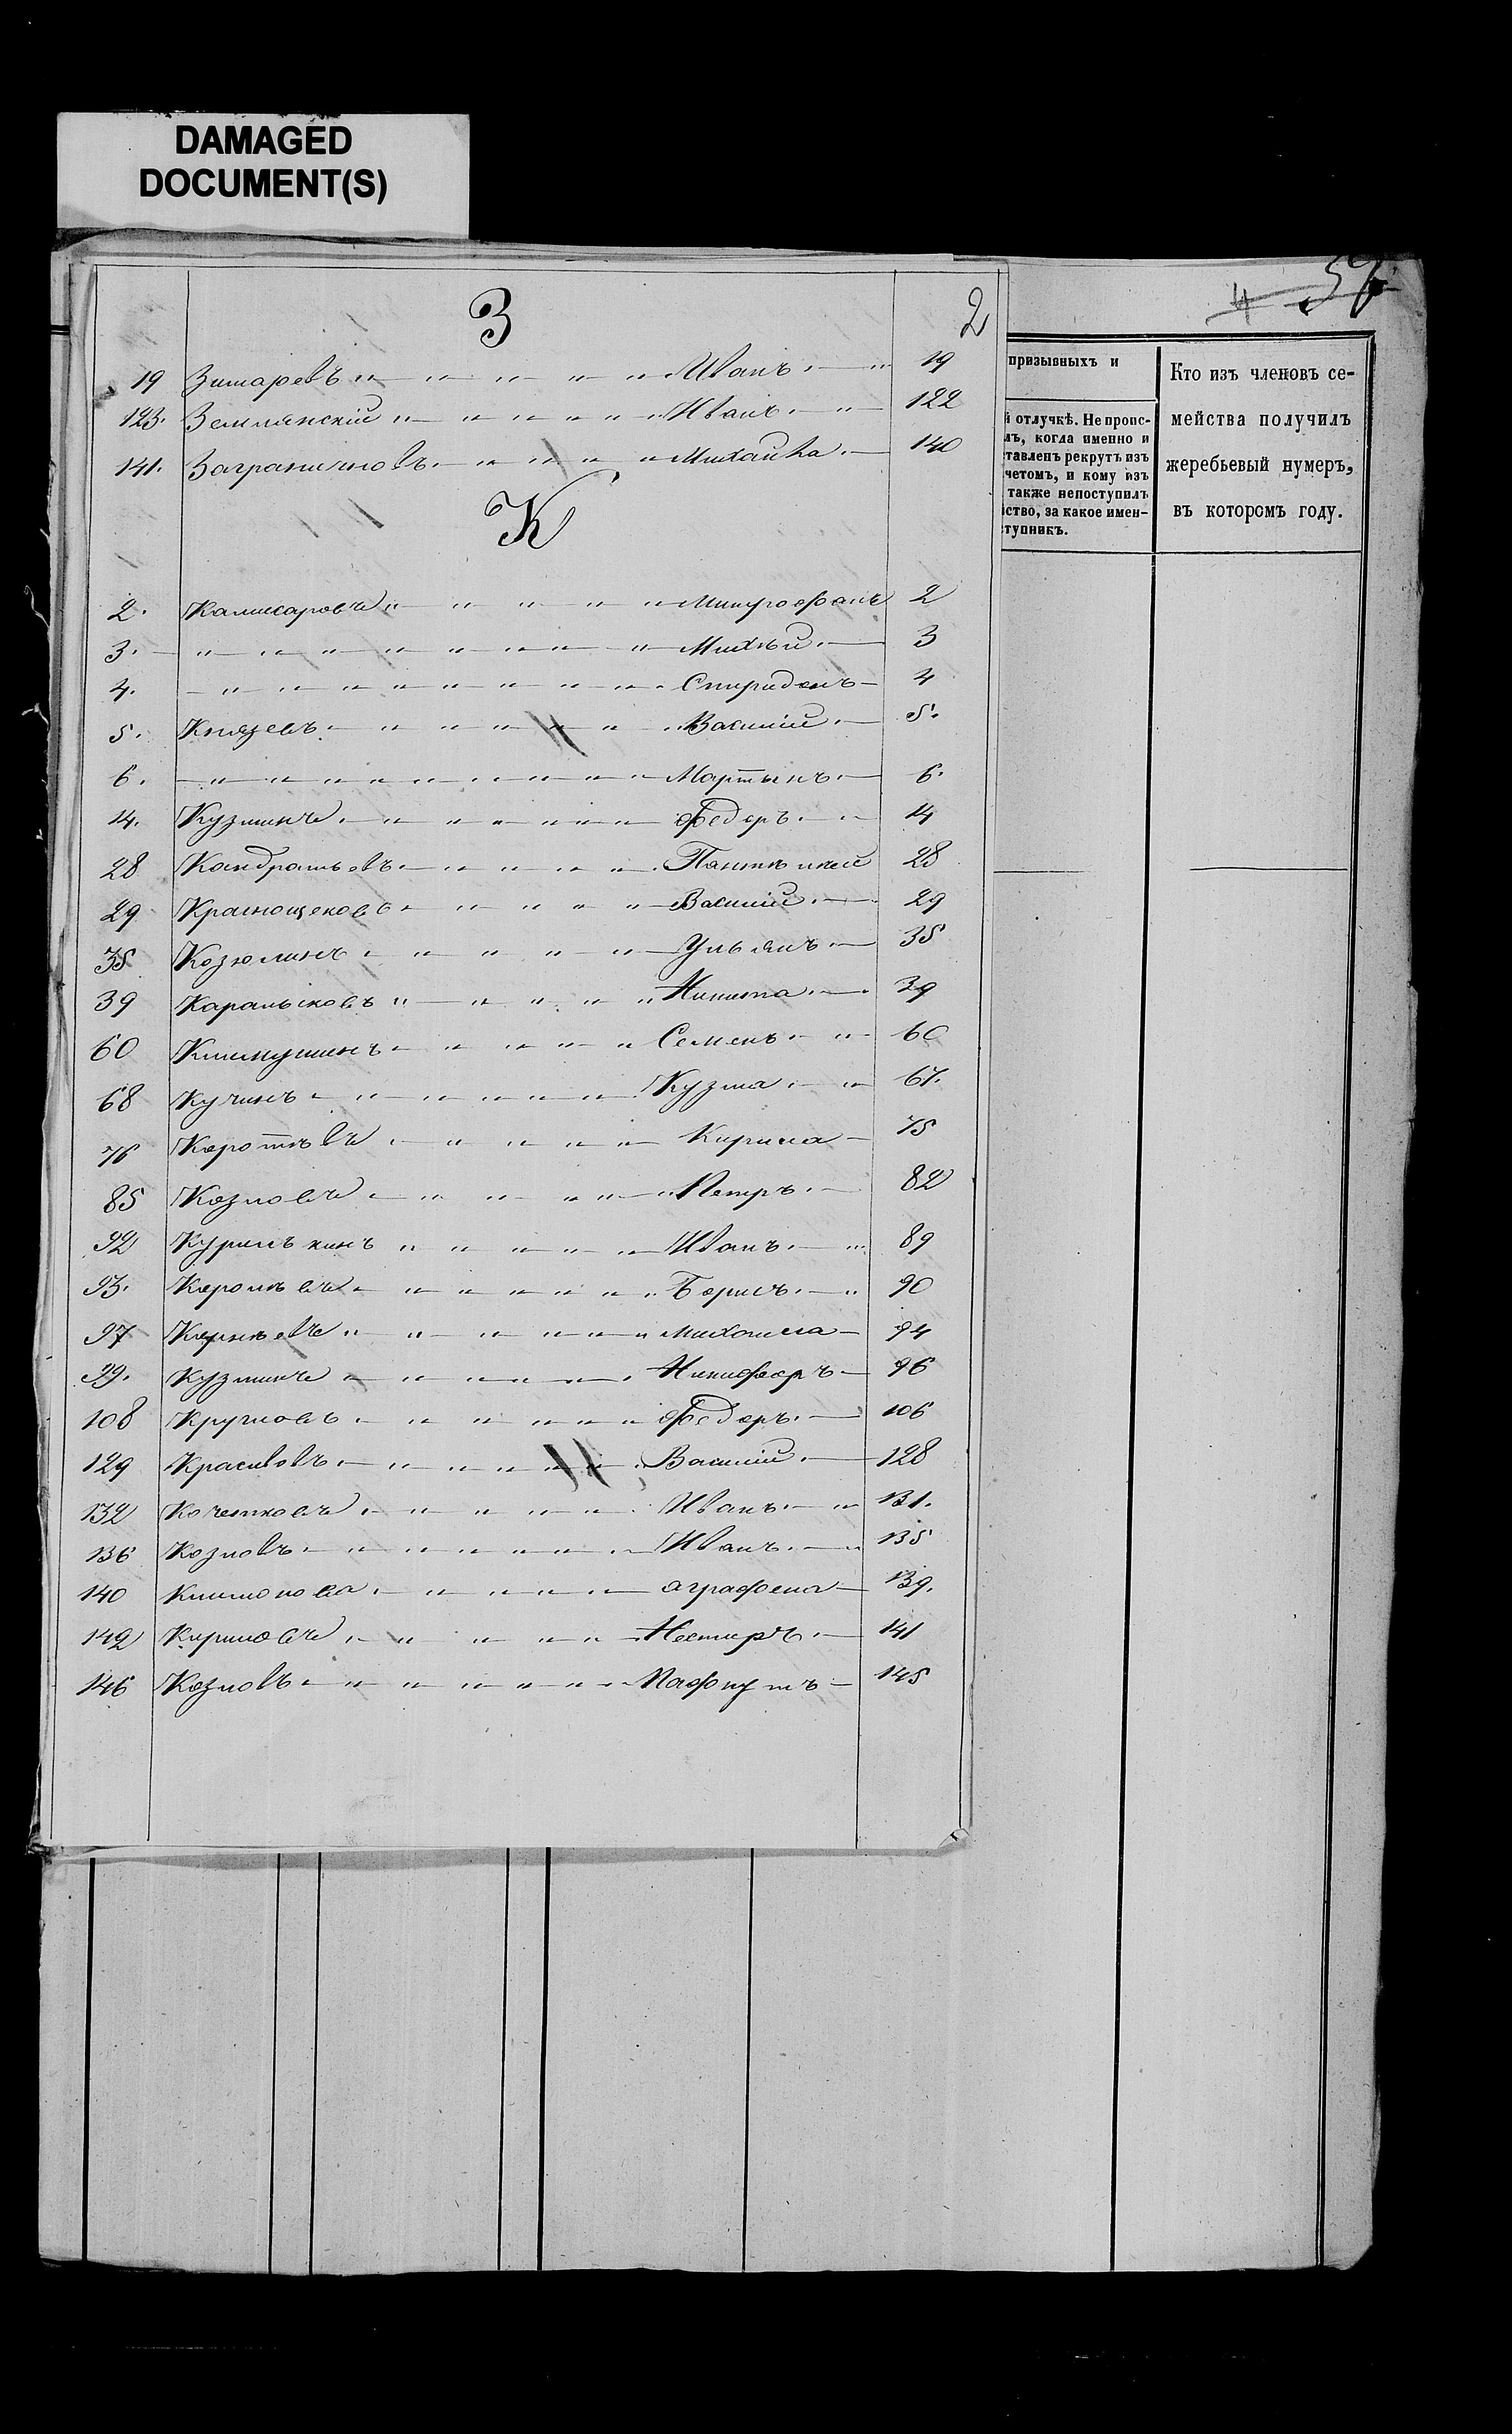 DAMAGED
DOCUMENT(S)
57
4
2
З
19 Зимаревъ Иванъ 19
123. Землянскій Иванъ 122
141. Заграничновъ Михаила 140
К
2. Камисаровъ Митрофанъ 2
3. Михѣй 3
4. Спиридонъ 4
5. Князевъ Василій 5.
6. Мартынъ 6.
14. Кузминъ Федоръ 14
28 Кандратьевъ 28
29 Краснощековъ Василій 29
35 Козюлинъ Ульянъ 35
39 Карамыковъ Никита 39
60 Климушинъ Семенъ 60
68 Кучинъ Кузма 67.
76 Коротѣвъ Кирила 75
85 Козловъ Петръ 82
92 Курилъкинъ Иванъ 89
93. Королѣвъ Борисъ 90
97 Корнѣевъ Михаила 94
99. Кузминъ Никифоръ 96
108 Кругловъ Федоръ 106
129 Красивовъ Василій 128
132 Кочетковъ Иванъ 131.
136 Козловъ Иванъ 135
140 Климонова аграфена 139.
142 Кириловъ Нестиръ 141
146 Козловъ Пафнутъ 145
призывныхъ и
й отлучкѣ. Не проис-
лъ, когда именно и
тавленъ рекрутъ изъ
четомъ, и кому изъ
также непоступилъ
йство, за какое имен-
ступникъ.
Кто изъ членовъ се-
мейства получилъ
жеребьевый нумеръ,
въ которомъ году.